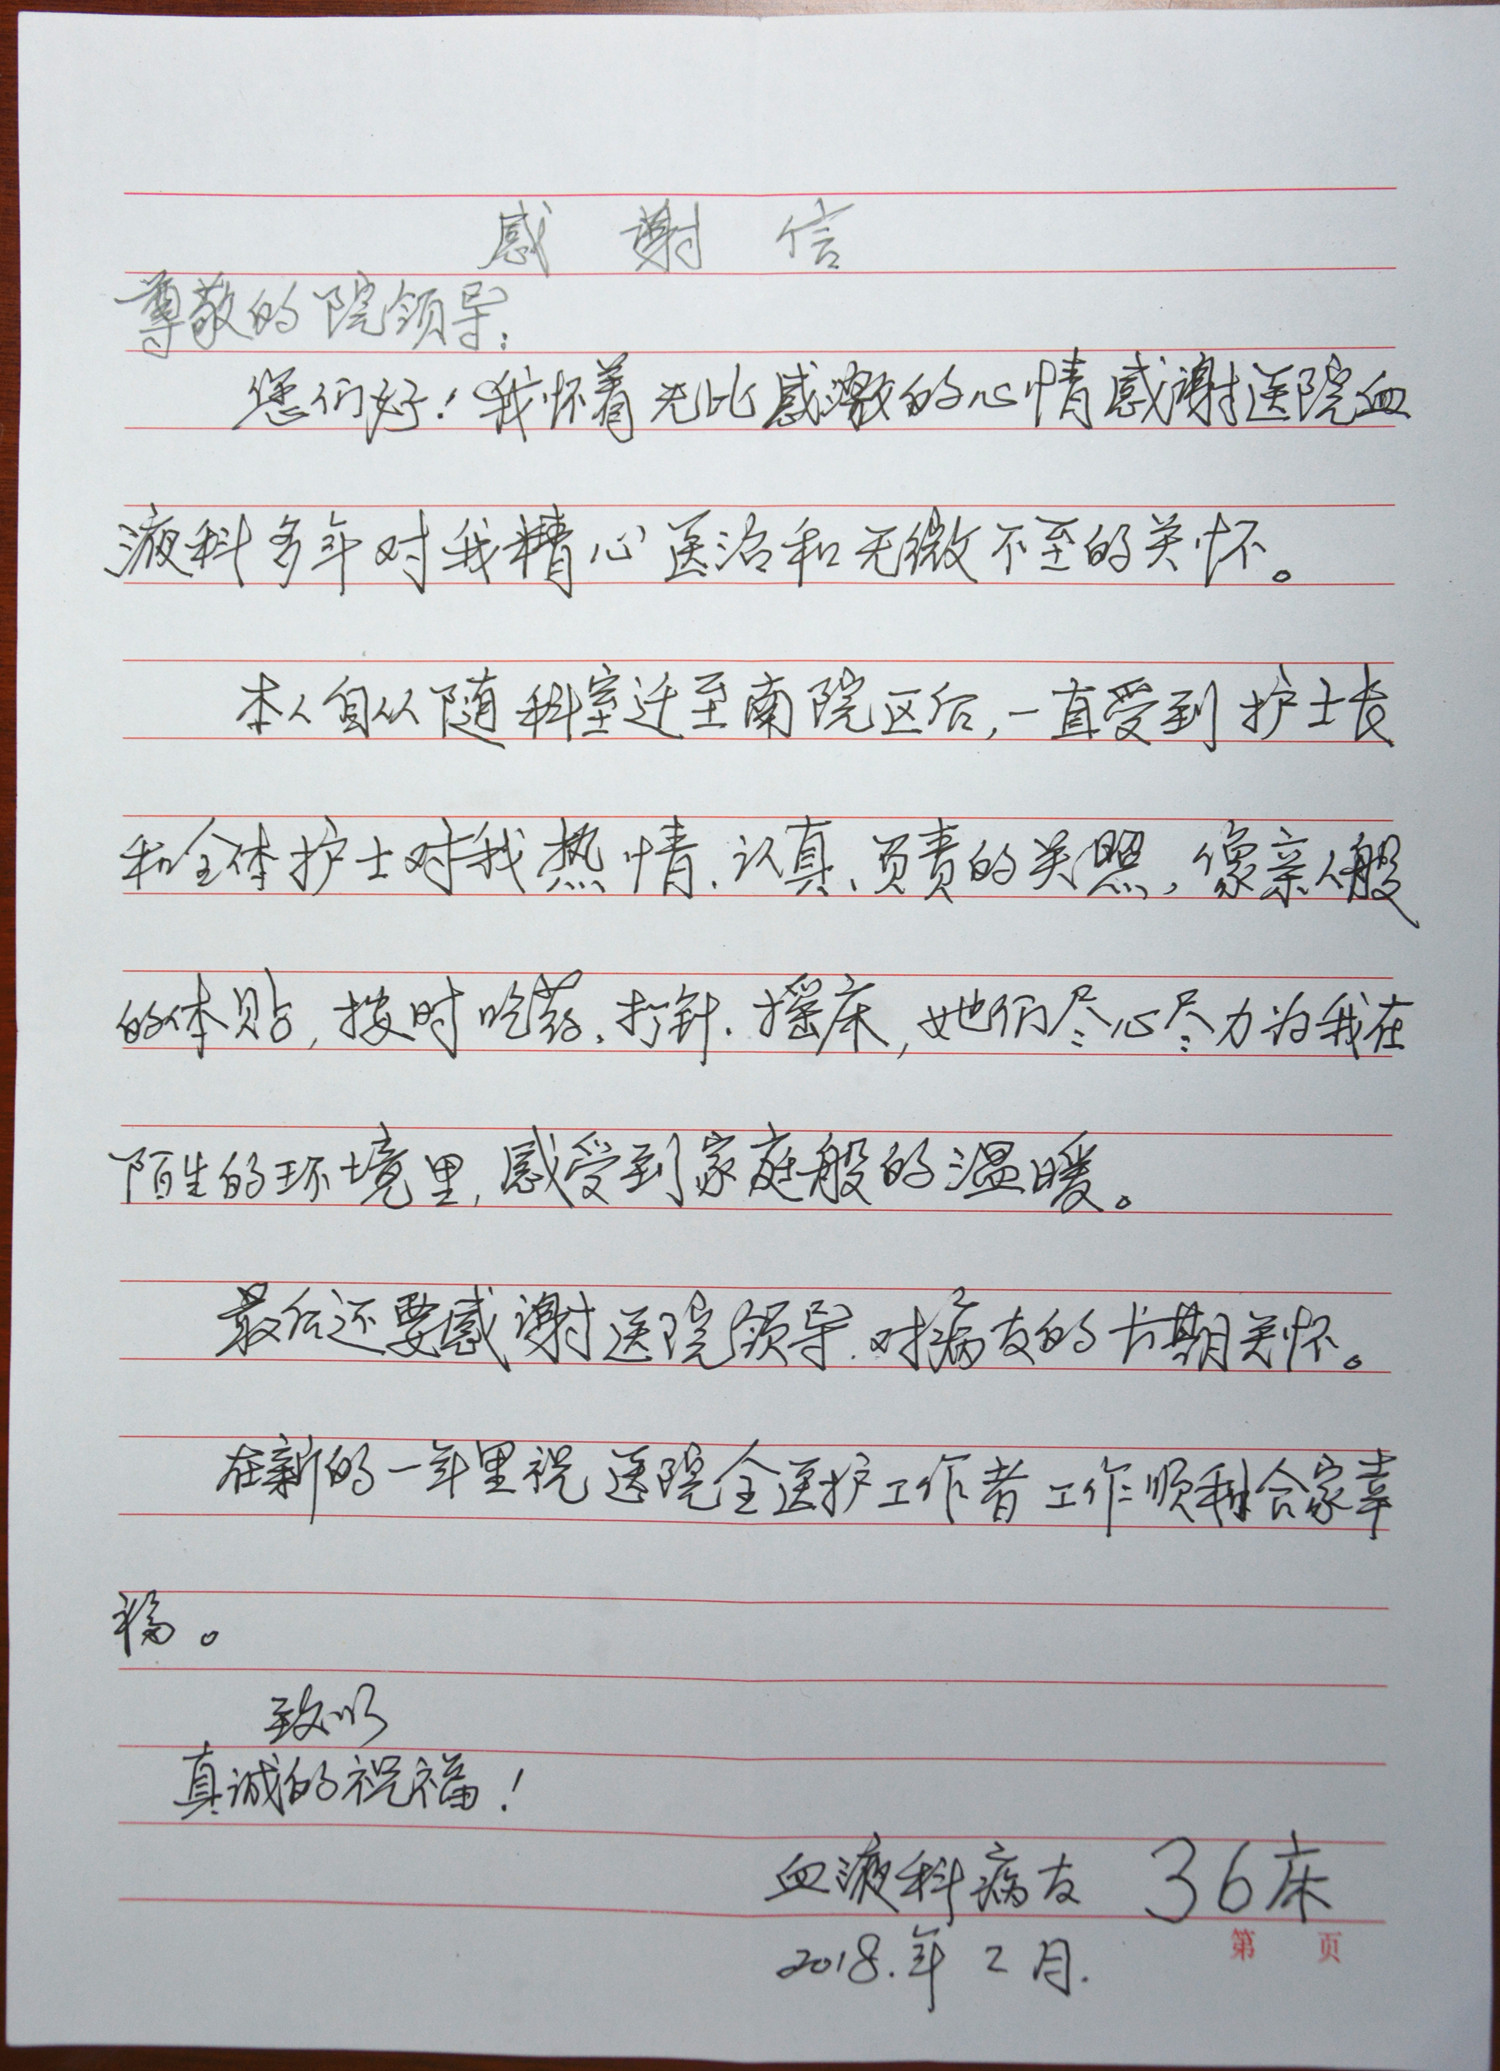 感谢信
尊敬的院领导：
您们好！我怀着无比感激的心情感谢医院血
液科多年对我精心医治和无微不至的关怀。
本人自从随科室迁至南院区后，一直受到护士长
和全体护士对我热情、认真、负责的关照，像亲人般
的体贴，按时吃药、打针、摇床，她们尽心尽力为我在
陌生的环境里，感受到家庭般的温暖。
最后还要感谢医院领导、对病友的长期关怀。
在新的一年里祝医院全医护工作者工作顺利合家幸
福。
致以
真诚的祝福！
血液科病友 36床
2018.年2月.
第 页